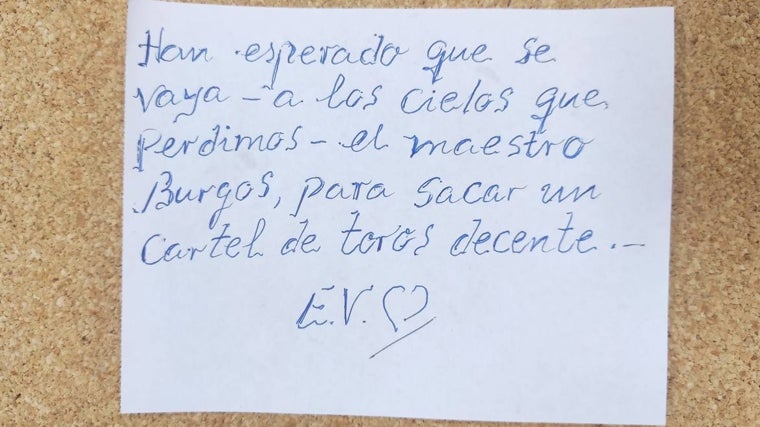 Han esperado que se
vaya - a los cielos que
perdimos - el maestro
Burgos, para sacar un
cartel de toros decente.-
E.V.♡